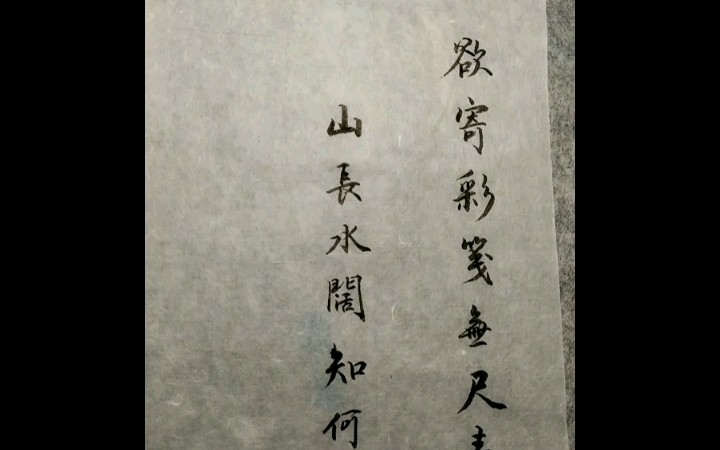 欲寄彩箋無尺
山長水闊知何